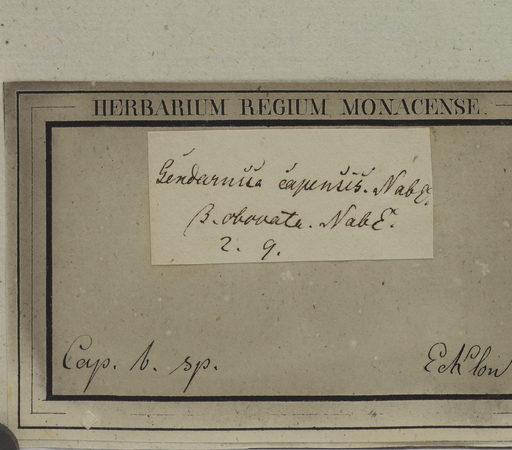 HERBARIUM REGIUM MONACENSE.
Gendarussa capensis. Nab E.
β. obovata. Nab E.
2. 9.
Cap. b. sp.
Ecklon